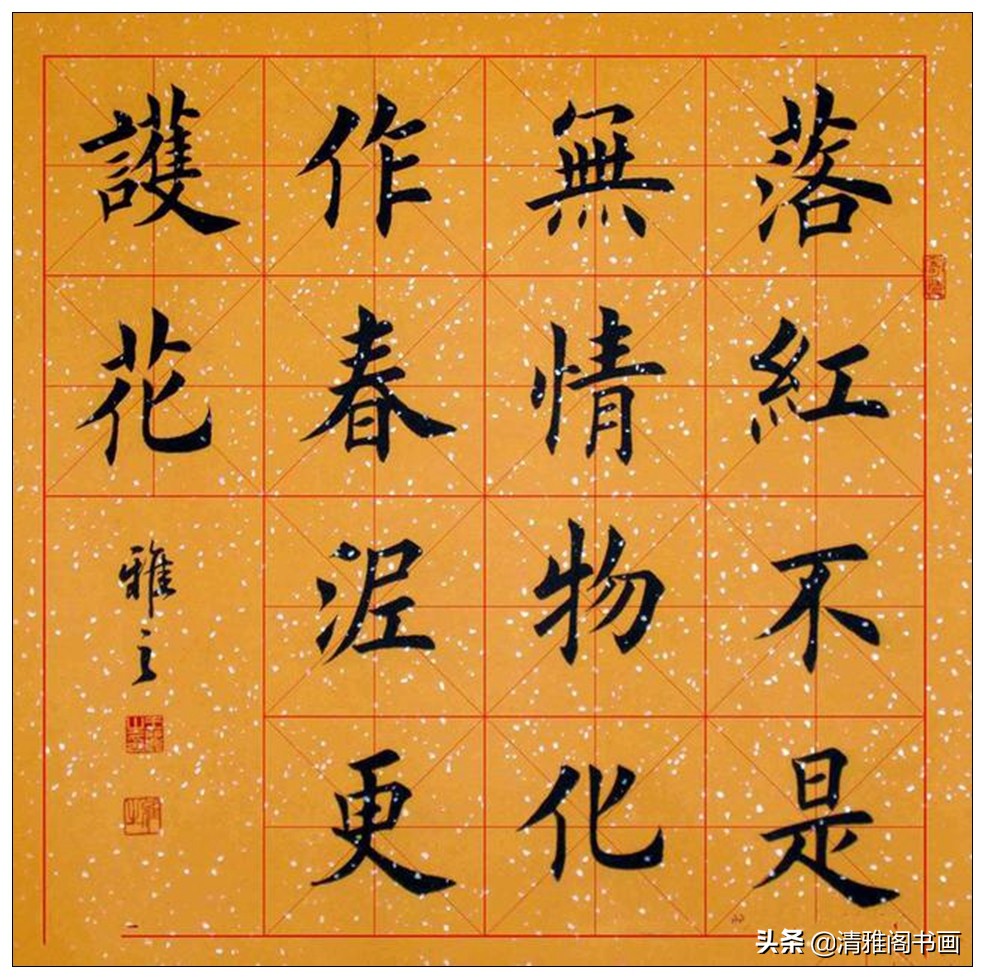 落紅不是
無情物化
作春泥更
護花
雅之
头条 @清雅阁书画